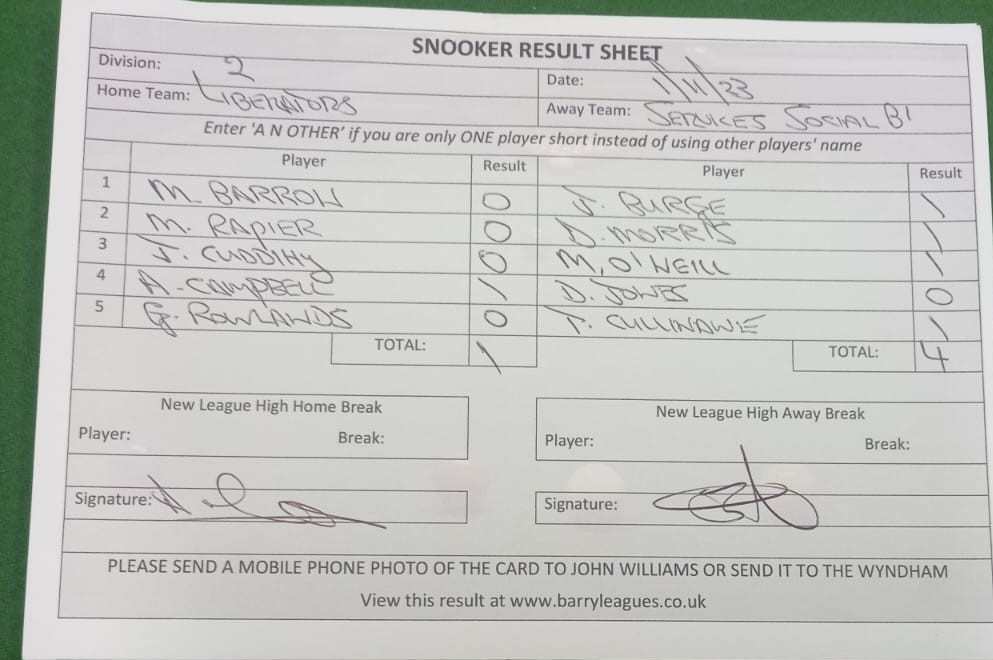 SNOOKER RESULT SHEET
Division: 2 Date: 1/11/23
Home Team: LIBERATORS Away Team: SERVICES SOCIAL B'
Enter 'A N OTHER' if you are only ONE player short instead of using other players' name
Player Result Player Result
1 M. BARROW 0 J. BURGE 1
2 M. RAPIER 0 D. MORRIS 1
3 J. CUDDIHY 0 M. O'NEILL 1
4 A. CAMPBELL 1 D. JONES 0
5 G. ROWLANDS 0 T. CULLINANE 1
TOTAL: 1 TOTAL: 4
New League High Home Break New League High Away Break
Player: Break: Player: Break:
Signature: Signature:
PLEASE SEND A MOBILE PHONE PHOTO OF THE CARD TO JOHN WILLIAMS OR SEND IT TO THE WYNDHAM
View this result at www.barryleagues.co.uk